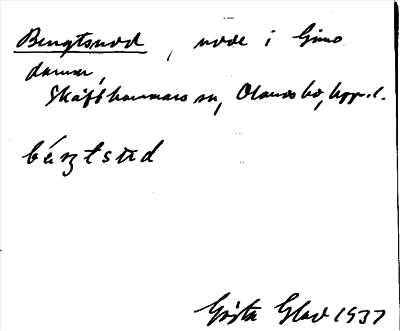 Bengtsudd, udde i Gimo
dammar,
Skäfthammars sn, Olands hd, Upps. l.
béŋtsud
Gösta Glad 1937